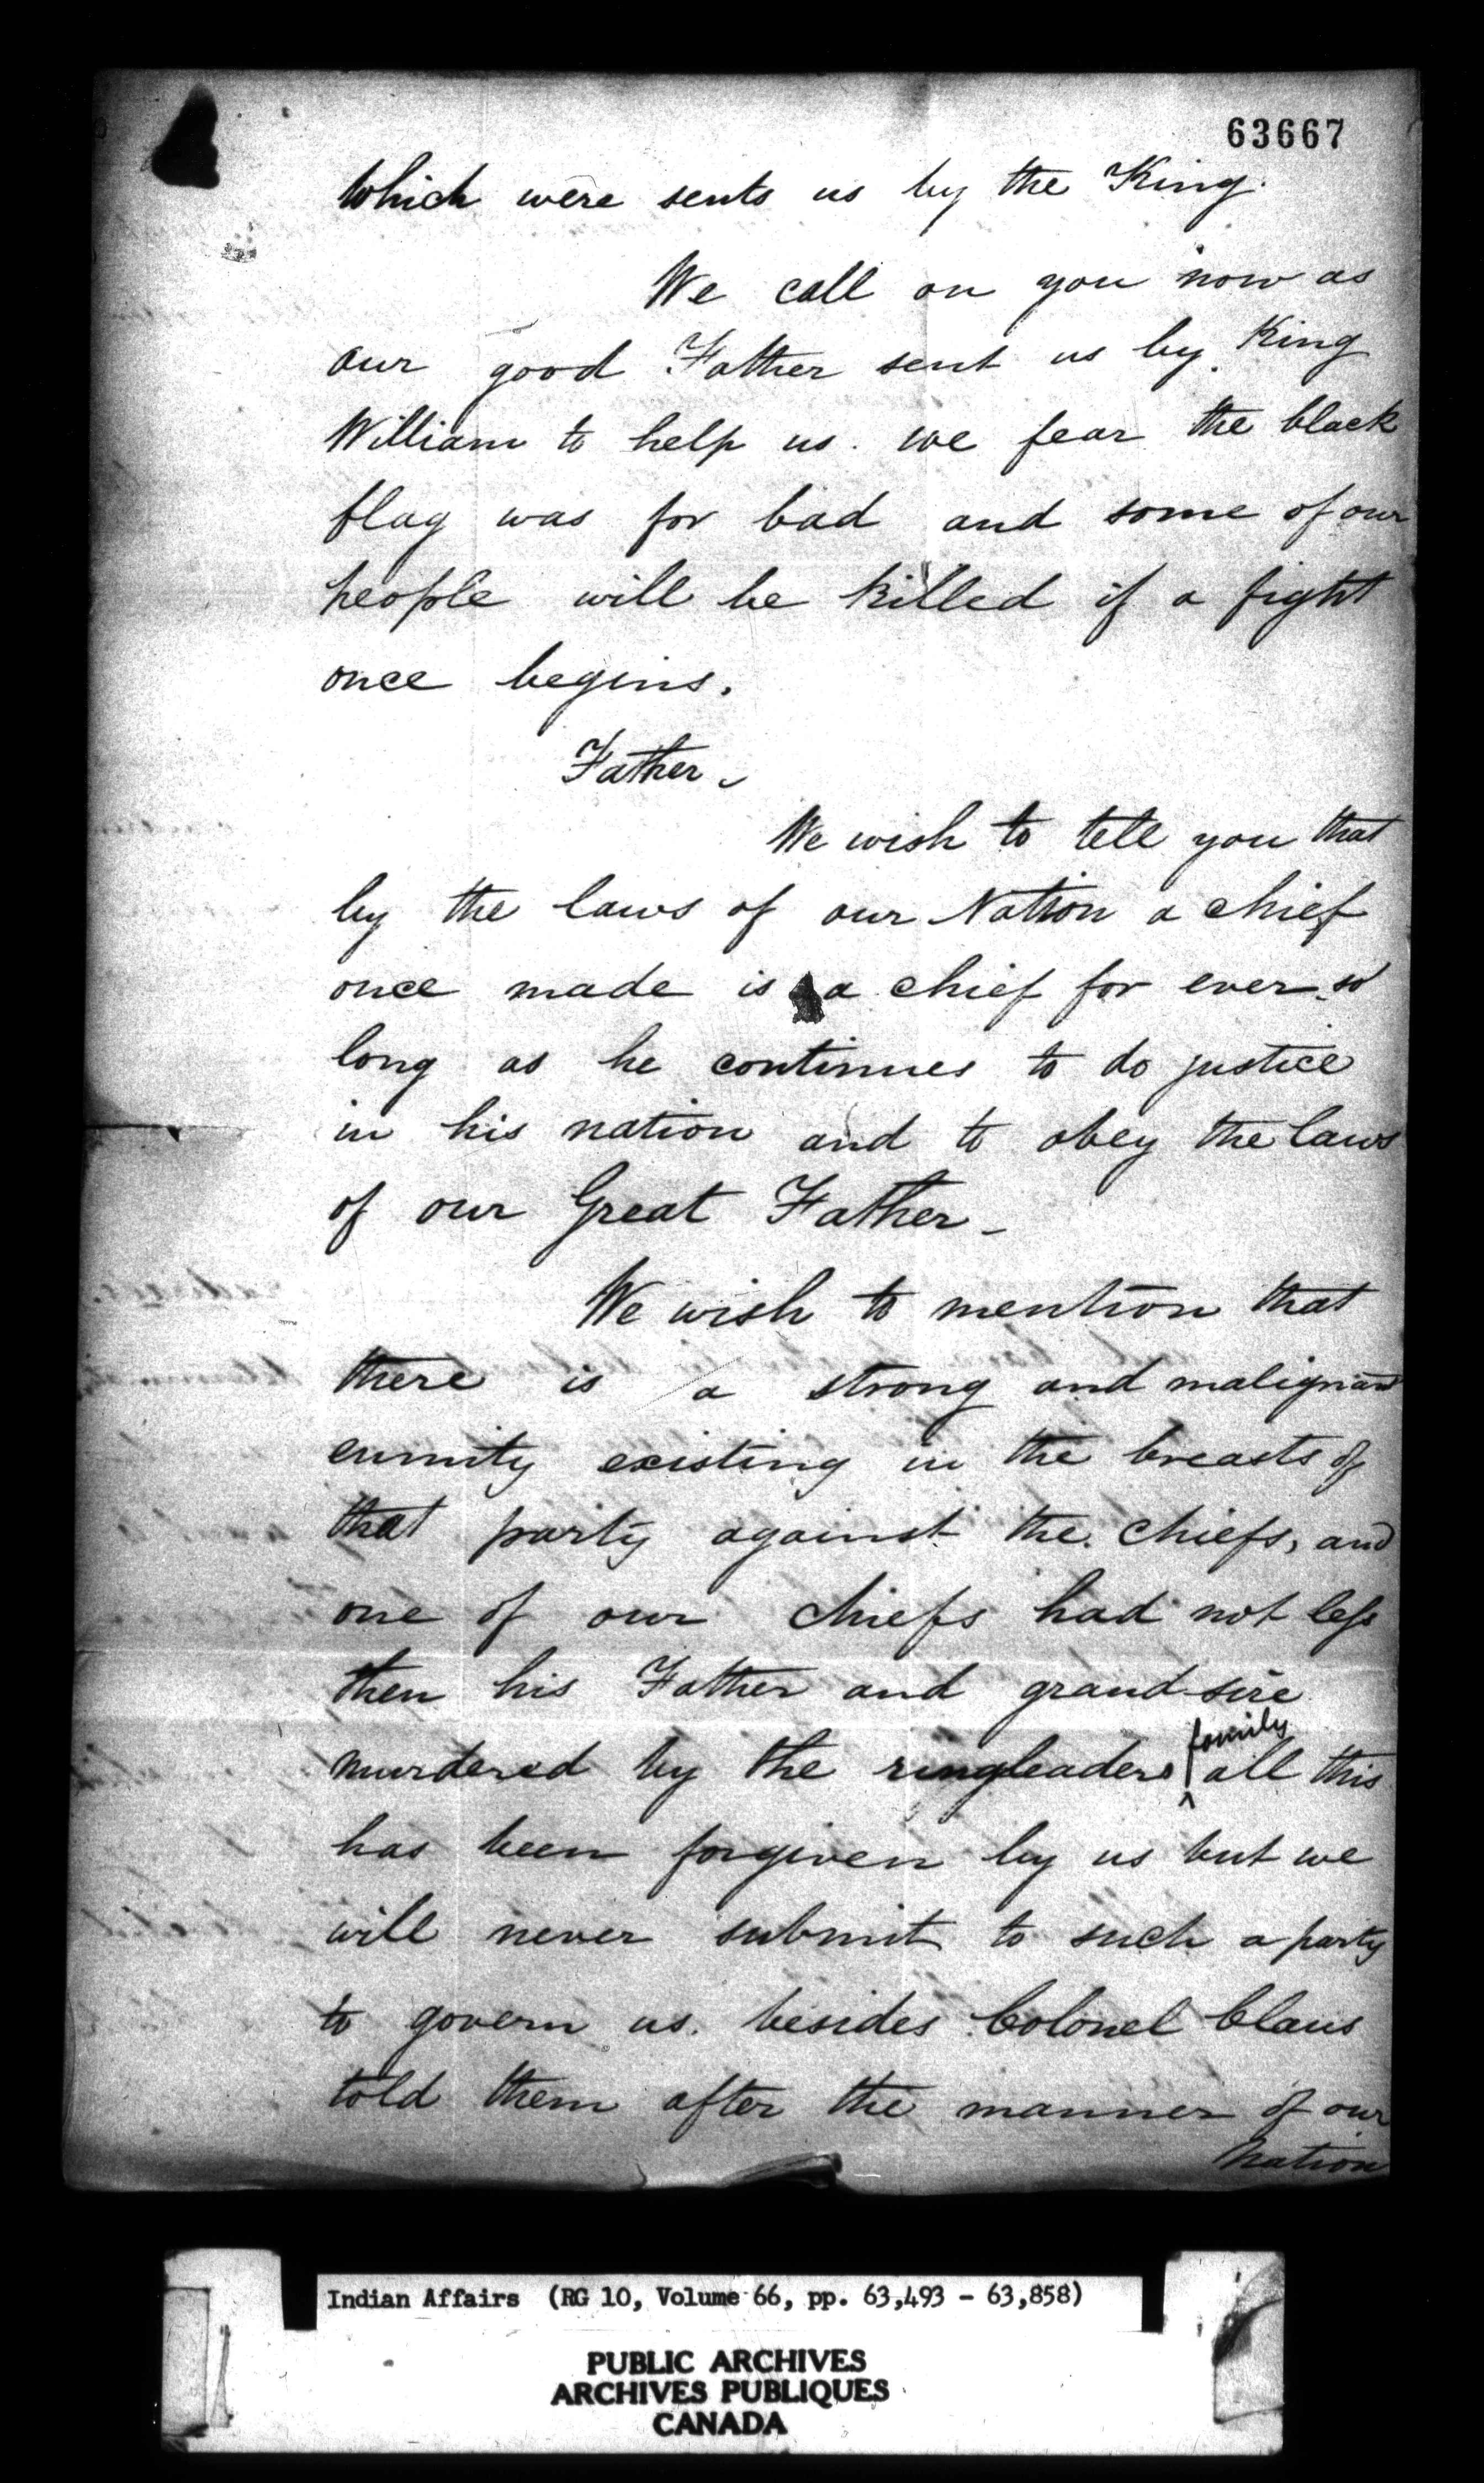 63667
which were sents us by the King.
We call on you now as
our good Father sent us by King
William to help us. we fear the black
flag was for bad and some of our
people will be killed if a fight
once begins.
Father.
We wish to tell you that
by the laws of our Nation a chief
once made is a chief for ever so
long as he continues to do justice
in his nation and to obey the laws
of our Great Father_
We wish to mention that
there is a strong and malignant
enmity existing in the breasts of
that party against the chiefs, and
one of our chiefs had not less
then his Father and grand-sire
family
murdered by the ringleaders all this
has been forgiven by us but we
will never submit to such a party
to govern us. besides Colonel Claus
told them after the manner of our
Nation
Indian Affairs (RG 10, Volume 66, pp. 63,493 - 63,858)
PUBLIC ARCHIVES
ARCHIVES PUBLIQUES
CANADA